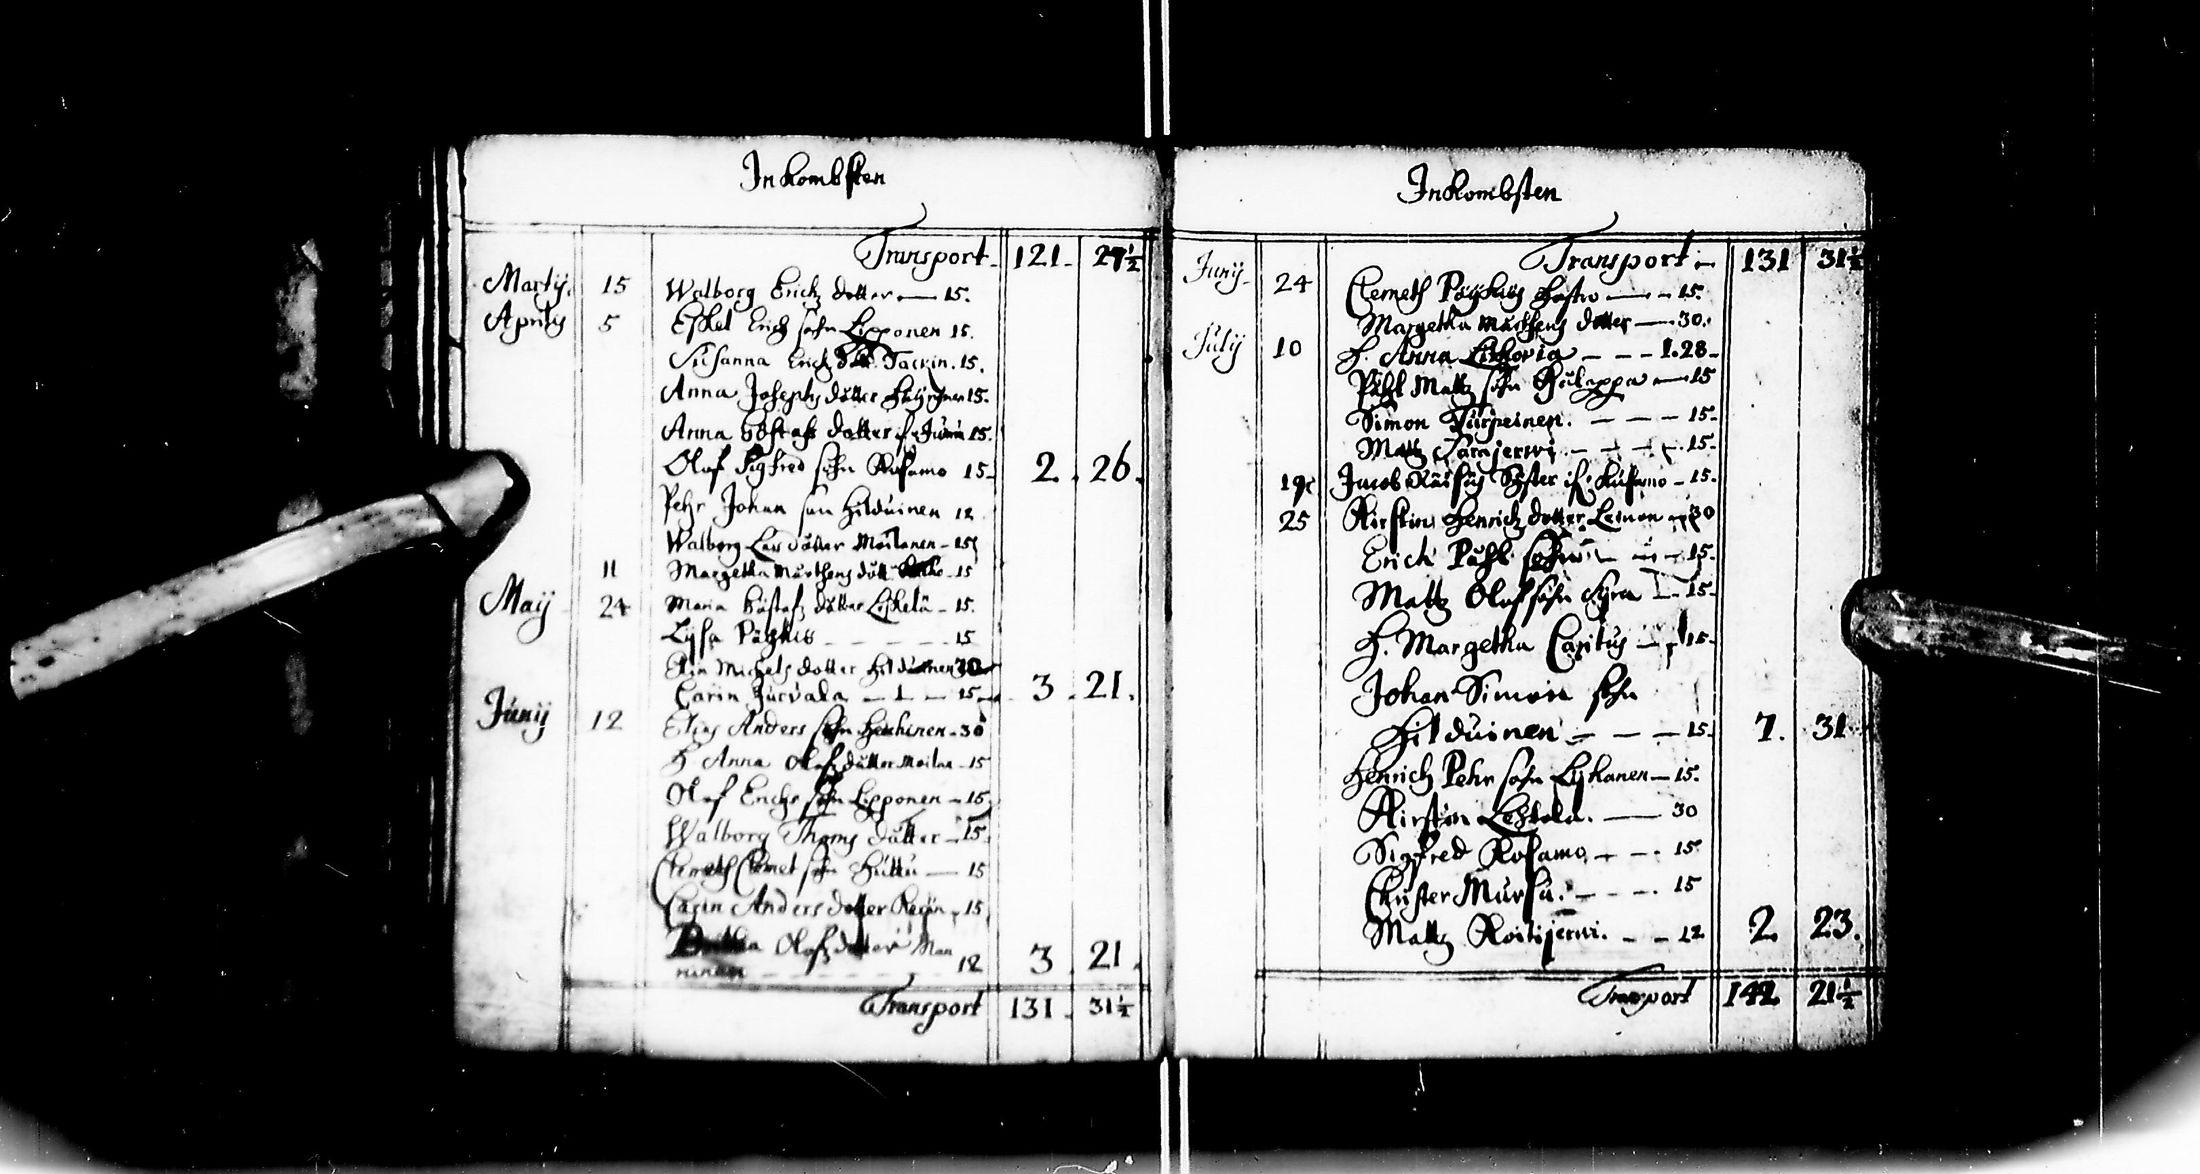 Inkombsten
Transport - 121 - 27½
Martij. 15 Walborg Erichz dotter — 15.
Aprilij 5 Eskel Erich sohn Lipponen 15.
Susanna Erich dott. 15.
Anna Josephz dotter 15.
Anna Göstafs dotter 15.
Olof Sigfred sohn Kusamo 15 - 2 . 26.
Pehr Johan son Hilduinen 12
Walborg Lars dotter Moilanen - 15
11 Margetha Mårthens dott. - 15
Maij 24 Maria Göstafz dotter - 15.
Lijsa Päzkis - - - 15
Elin Michels dotter Hilduinen 30
Carin Jurvala - 1 - 15 - 3 . 21.
Junij 12 Elias Anders sohn Heikinen - 30
H Anna Olofz dotter Moilan - 15
Olof Erichs sohn Lipponen - 15
Walborg Thoms dotter - 15
Clemeth Clemet sohn Huttu — 15
Carin Anders dotter - 15
Olofz dotter Man
ninen - - - 12 3 . 21.
Transport 131 . 31½
Inkombsten
Transport - 131 31½
Junij - 24 Clemeth hustro — - 15.
Margetha Mårthens dotter — 30.
Julij 10 H. Anna - - - 1.28 -
Påhl Mattz sohn — 15
Simon Turpeinen. - - - 15.
Mattz - - - 15.
19 Jacob Syster if. Kusamo - 15.
25 Kirstin Henrichz dotter 30
Erich Påhl sohn - - - 15.
Mattz Olof sohn - 15.
H. Margetha - 15.
Johan Simon sohn
Hilduinen - - - 15. 7. 31
Henrich Pehr sohn Lykanen — 15.
Kirstin — 30
Sigfred Kusamo - - 15
Christer Mursu. - - - 15
Mattz Koitijerwi. - - 12 2 23.
Transport 142 21½